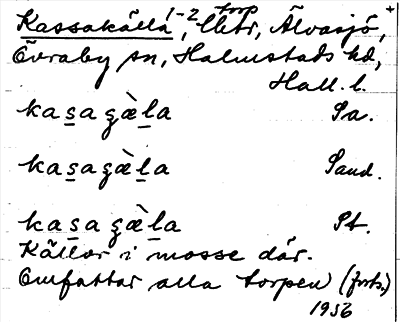 Kassakälla 1-2, torp, Älvasjö, +
Övraby sn, Halmstads hd,
Hall. l.
kas̲agæ̀l̲a Sa.
kas̲agæ̀l̲a Sand.
kas̲agæ̀l̲a St.
Källor i mosse där.
Omfattar alla torpen (forts.)
1936